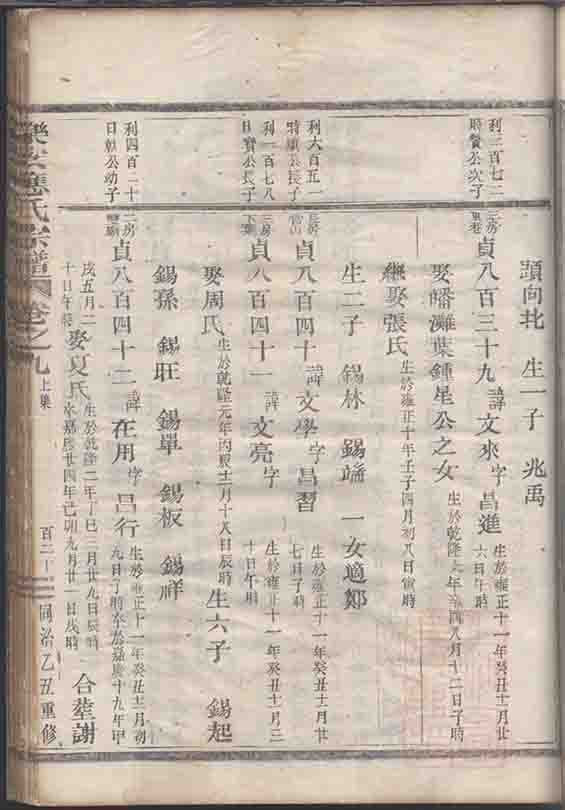 頭向北 生一子 兆禹
利二百七二
公次子
三房
貞八百三十九 諱文來字昌進 生於雍正十一年癸丑十二月廿六日午時
娶皤灘葉鍾星公之女 生於乾隆 年 八月十二日子時
繼娶張氏 生於雍正十年壬子四月初八日寅時
生二子 錫林 錫端 一女適鄭
利六百五一
公長子
長房
貞八百四十 諱文學字昌習 生於雍正十一年癸丑十二月廿七日子時
利一百七八
日寶公長子
三房
貞八百四十一 諱文亮字 生於雍正十一年癸丑十二月三十日午時
娶周氏 生於乾隆元年丙辰十二月十八日辰時 生六子 錫起
錫孫 錫旺 錫單 錫板 錫祥
利四百二十
日 公幼子
二房
貞八百四十二 諱在用字昌行 生於雍正十一年癸丑十二月初九日子時卒於嘉慶十九年甲
戌五月二十日午時 娶夏氏 生於乾隆二年丁巳三月廿九日辰時卒嘉慶廿四年己卯九月廿一日戌時 合塟謝
樂安應氏宗譜 卷之九 上集 同治乙丑重修